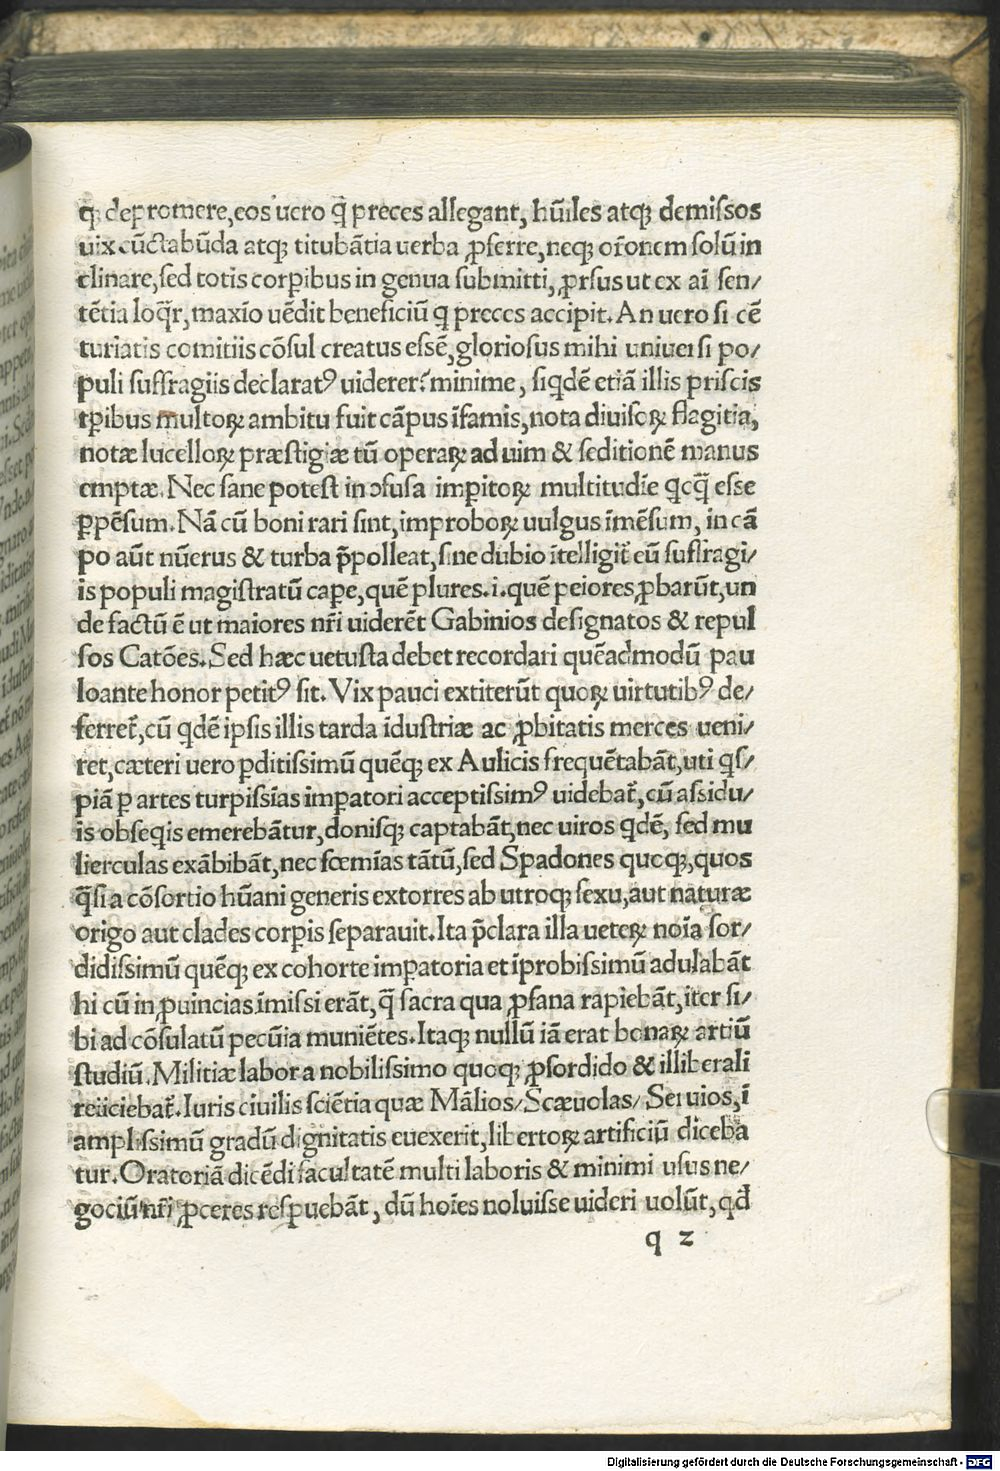 q; depromere,eos uero q̄ preces allegant, hūiles atq; demissos
uix cūctabūda atq; titubātia uerba ꝓferre,neq; or̄onem solū in
clinare,sed totis corꝑibus in genua submitti, ꝓrsus ut ex aĩ sen/
tētia loq̄r,maxīo uēdit beneficiū q preces accipit. An uero si cē
turiatis comitiis cōsul creatus essē,gloriosus mihi uniuersi po/
puli suffragiis declaratꝰ uiderer? minime, siqdē etiā illis priscis
tꝑibus multoꝝ ambitu fuit cāpus īfamis,nota diuisoꝝ flagitia,
notæ lucelloꝝ præstigiæ tū operaꝝ ad uim & seditionē manus
emptæ. Nec sane potest in ↄfusa imꝑitoꝝ multitudīe qcq̄ esse
ꝑpēsum. Nā cū boni rari sint,improboꝝ uulgus īmēsum, in cā
po aūt nūerus & turba p̄polleat,sine dubio ītelligit̄ eū suffragi/
is populi magistratū caꝑe,quē plures.i.quē peiores ꝓbarūt,un
de factū ē ut maiores nr̄i uiderēt Gabinios designatos & repul
sos Catōes. Sed hæc uetusta debet recordari quēadmodū pau
loante honor petitꝰ sit. Vix pauci extiterūt quoꝝ uirtutibꝰ de/
ferret̄,cū qdē ipsis illis tarda īdustriæ ac ꝓbitatis merces ueni/
ret,cæteri uero ꝑditissimū quēq; ex Aulicis frequētabāt,uti qs/
piā ꝑ artes turpissīas imꝑatori acceptissimꝰ uidebat̄,cū assidu/
is obseqis emerebātur,donisq; captabāt,nec uiros qdē, sed mu
lierculas exābibāt,nec fœmīas tātū,sed Spadones quoq;,quos
q̄si a cōsortio hūani generis extorres ab utroq; sexu,aut naturæ
origo aut clades corꝑis separauit. Ita p̄clara illa ueteꝝ noīa sor/
didissimū quēq; ex cohorte imꝑatoria et īprobissimū adulabāt
hi cū in ꝓuincias īmissi erāt, q̄ sacra qua ꝓfana rapiebāt,iter si/
bi ad cōsulatū pecūia muniētes. Itaq; nullū iā erat bonaꝝ artiū
studiū. Militiæ labor a nobilissimo quoq; ꝓ sordido & illiberali
reiiciebat̄. Iuris ciuilis sciētia quæ Mālios/Scæuolas/Seruios,ī
amplissimū gradū dignitatis euexerit,libertoꝝ artificiū diceba
tur. Oratoriā dicēdi facultatē multi laboris & minimi usus ne/
gociū nr̄i ꝓceres resꝑuebāt, dū hoīes noluisse uideri uolūt,qd
q 2
Digitalisierung gefördert durch die Deutsche Forschungsgemeinschaft - DFG